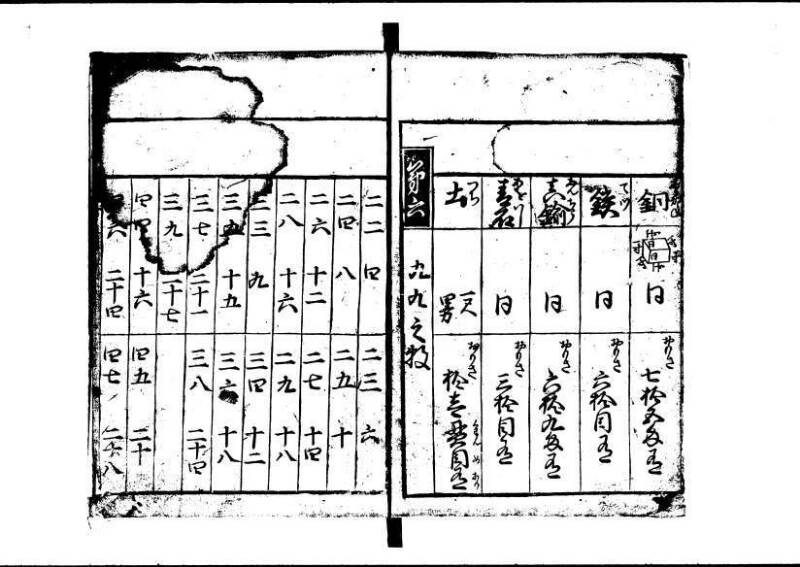 銅 同 おもさ 七拾五匁有
鉄 同 おもさ 六拾目有
真鍮 同 おもさ 六拾九匁有
青石 同 おもさ 三拾目有
土 おもさ 拾壱貫目有
第六
九九之数
二二 四 二三 六
二四 八 二五 十
二六 十二 二七 十四
二八 十六 二九 十八
三三 九 三四 十二
三五 十五 三六 十八
三七 二十一 三八 二十四
三九 二十七
四四 十六 四五 二十
四六 二十四 四七 二十八